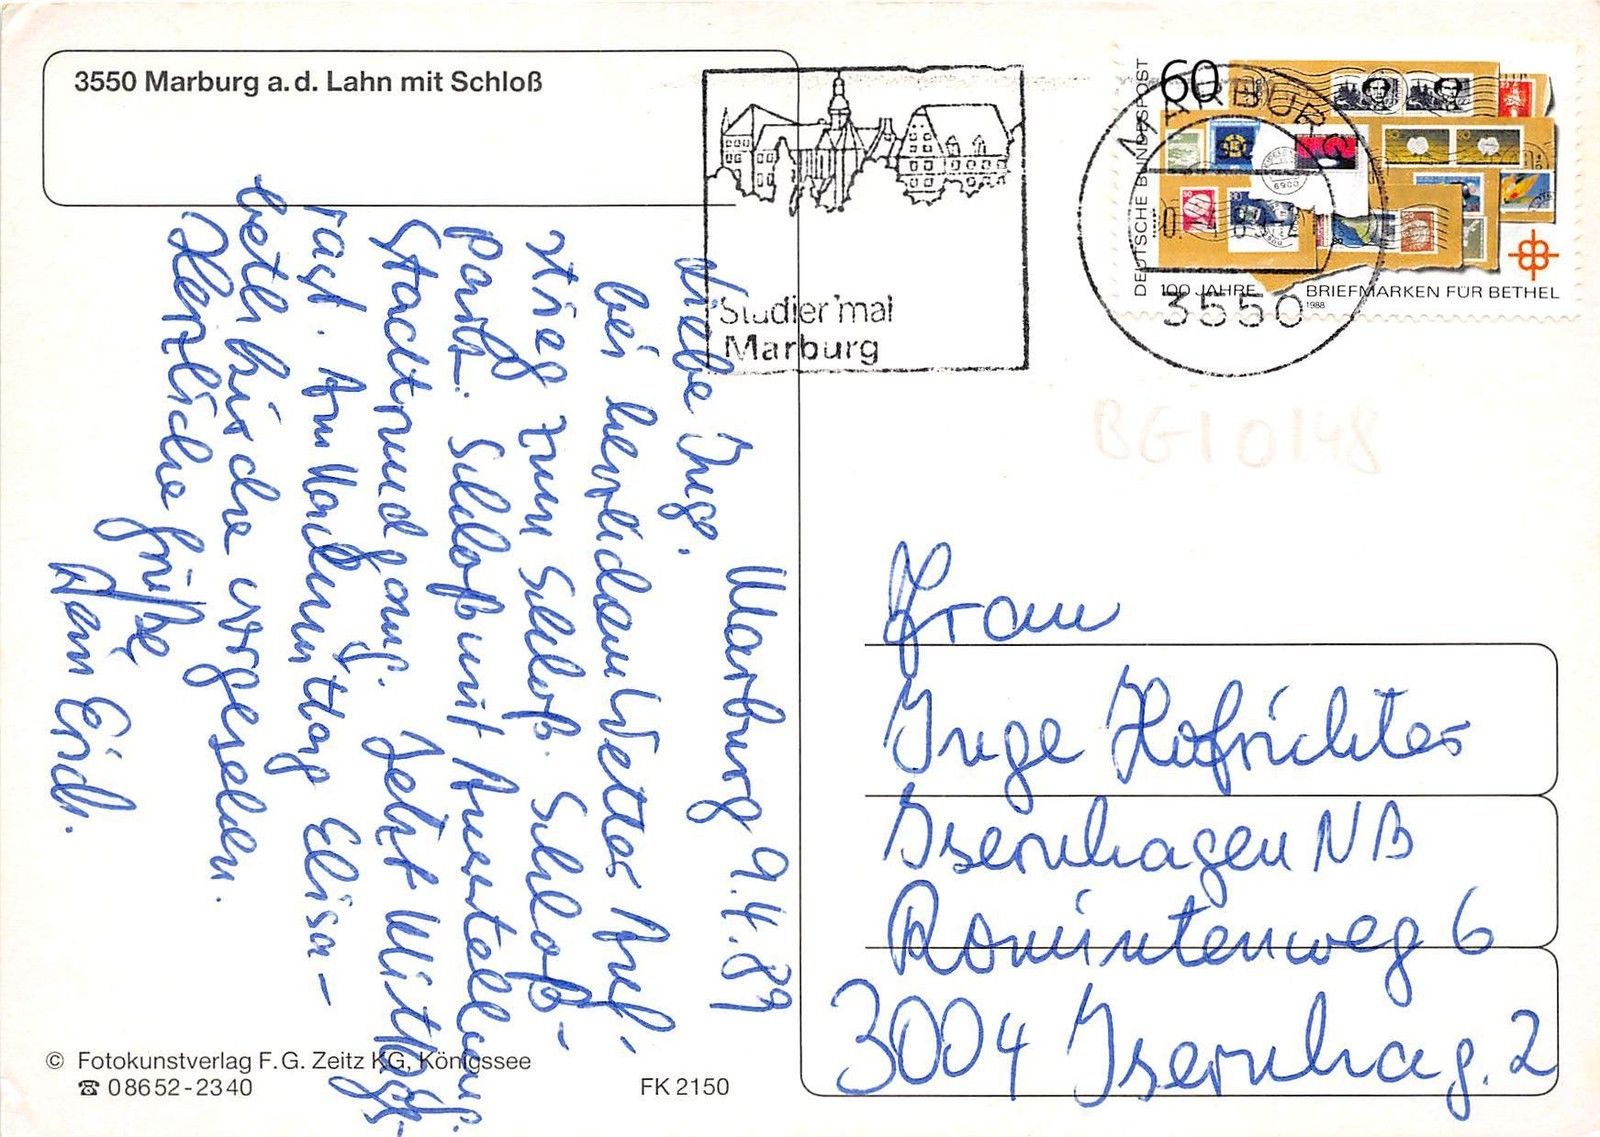 3550 Marburg a.d. Lahn mit Schloß
Studier'mal
Marburg
MARBURG
3550
60
DEUTSCHE BUNDESPOST
100 JAHRE BRIEFMARKEN FÜR BETHEL
1988
BG10148
Marburg 9.4.89
Liebe Inge.
bei herrlichem Wetter Auf-
stieg zum Schloß. Schloß-
park. Schloß mit Ausstellung.
Stadtrundgang. Jetzt Mittags-
rast. Am Nachmittag Elisa-
bethkirche vorgesehen.
Herzliche Grüße
Dein Erich.
Frau
Inge Hofrichter
Isernhagen NB
Romintenweg 6
3004 Isernhag. 2
© Fotokunstverlag F.G. Zeitz KG, Königssee
☎ 08652-2340
FK 2150